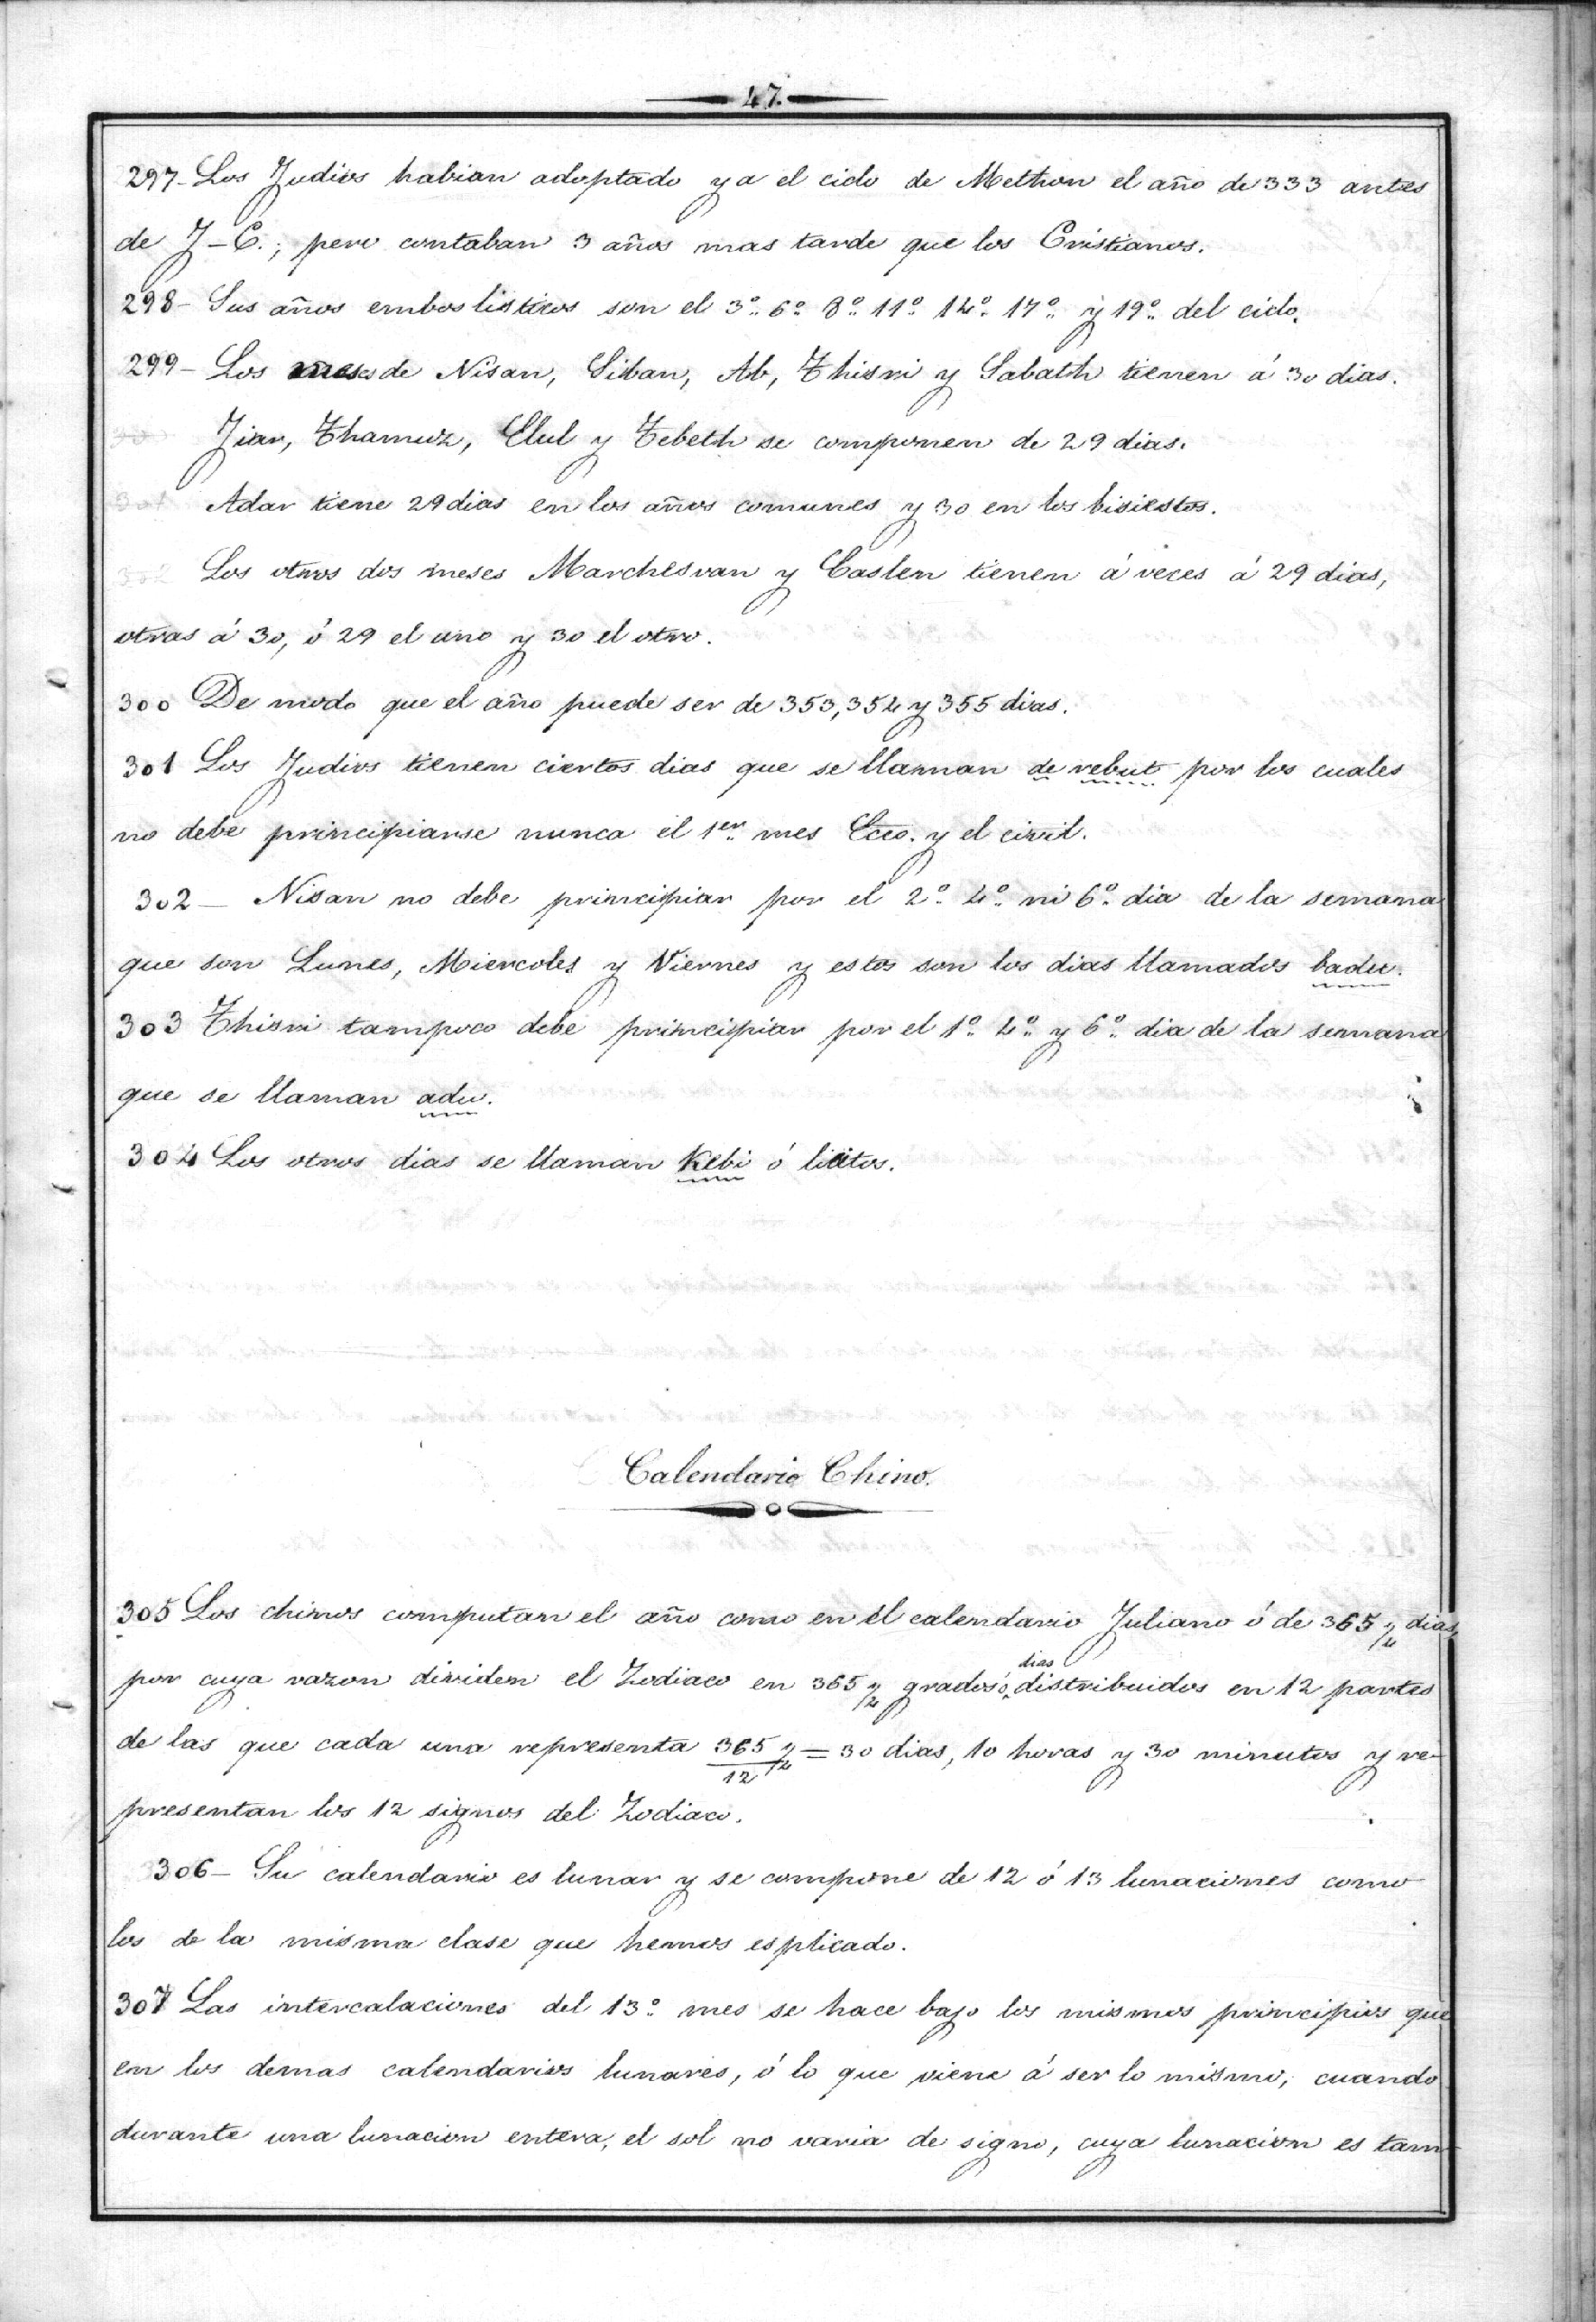 47.
297- Los Judios habian adoptado ya el ciclo de Methon el año de 333 antes
de J-C.; pero contaban 3 años mas tarde que los Cristianos.
298- Sus años embolisticos son el 3º 6º 8º 11º 14º 17º y 19º del ciclo.
299- Los meses de Nisan, Siban, Ab, Thisri y Sabath tienen á 30 dias.
Jiar, Thamuz, Elul y Tebeth se componen de 29 dias.
Adar tiene 29 dias en los años comunes y 30 en los bisiestos.
Los otros dos meses Marchesvan y Caslen tienen á veces á 29 dias,
otras á 30, ó 29 el uno y 30 el otro.
300 De modo que el año puede ser de 353, 354 y 355 dias.
301 Los Judios tienen ciertos dias que se llaman de rebut por los cuales
no debe principiarse nunca el 1er mes Ecco. y el civil.
302- Nisan no debe principiar por el 2º 4º ni 6º dia de la semana
que son Lunes, Miercoles y Viernes y estos son los dias llamados badu.
303 Thisri tampoco debe principiar por el 1º 4º y 6º dia de la semana
que se llaman adu.
304 Los otros dias se llaman Kebi ó licitos.
Calendario Chino.
305 Los chinos computan el año como en el calendario Juliano ó de 365 1/4 dias,
por cuya razon dividen el Zodiaco en 365 1/4 grados ó dias distribuidos en 12 partes
de las que cada una representa 365 1/4 / 12 = 30 dias, 10 horas y 30 minutos y re-
presentan los 12 signos del Zodiaco.
306- Su calendario es lunar y se compone de 12 ó 13 lunaciones como
los de la misma clase que hemos esplicado.
307 Las intercalaciones del 13º mes se hace bajo los mismos principios que
en los demas calendarios lunares, ó lo que viene á ser lo mismo, cuando
durante una lunacion entera, el sol no varia de signo, cuya lunacion es tam-